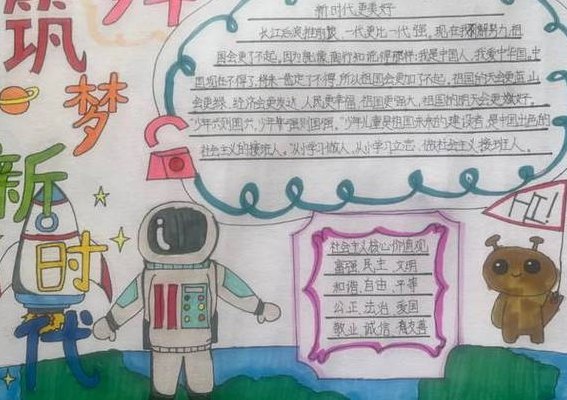 少年
筑梦新时代
新时代更美好
长江后浪推前浪，一代更比一代强。现在我们了解努力，祖
国会更了不起。因为就像陶行知说得那样：我是中国人，我爱中华国。中
国现在不得了，将来一定了不得，所以祖国会更加了不起，祖国的天会更蓝，山
会更绿，经济会更发达，人民更幸福，祖国更强大，祖国的明天会更美好。
"少年兴则国兴，少年强则国强。"少年儿童是祖国未来的建设者，是中国出色的
社会主义的接班人。"从小学习做人、从小学习立志，做社会主义接班人。
社会主义核心价值观
富强 民主 文明
和谐 自由 平等
公正 法治 爱国
敬业 诚信 友善
HI!